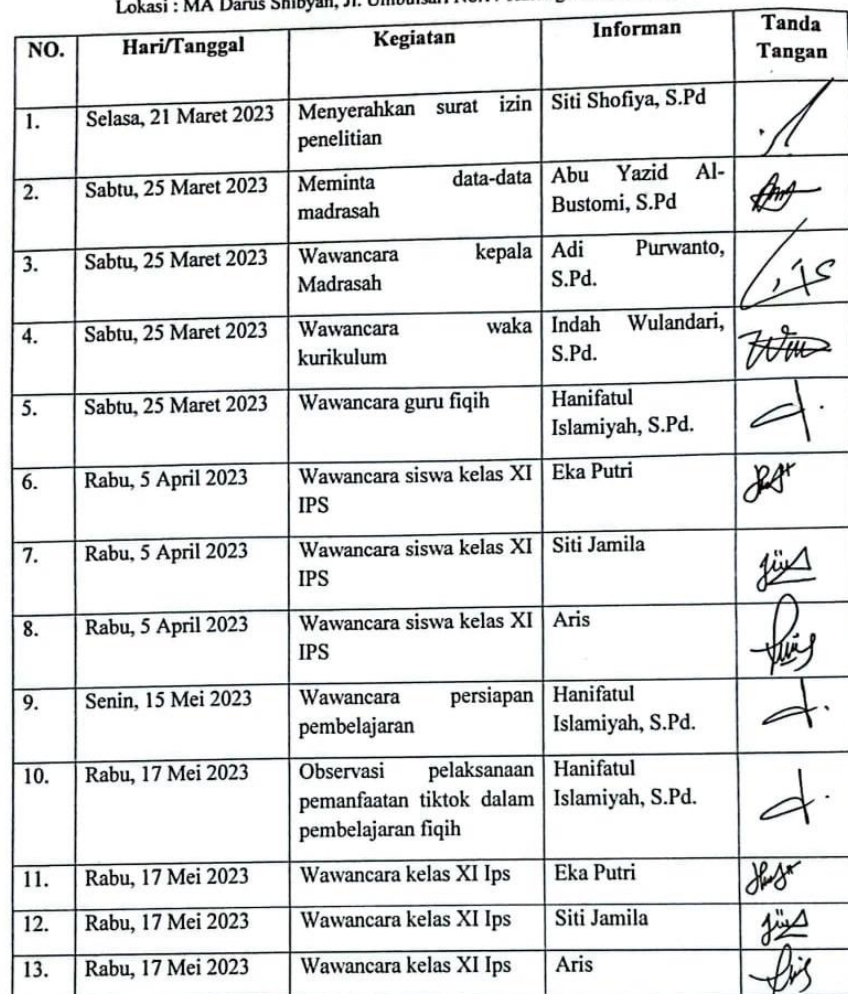 Lokasi : MA Darus Shibyan, Jl. Umbulsari
NO. Hari/Tanggal Kegiatan Informan Tanda
Tangan
1. Selasa, 21 Maret 2023 Menyerahkan surat izin Siti Shofiya, S.Pd
penelitian
2. Sabtu, 25 Maret 2023 Meminta data-data Abu Yazid Al-
madrasah Bustomi, S.Pd
3. Sabtu, 25 Maret 2023 Wawancara kepala Adi Purwanto,
Madrasah S.Pd.
4. Sabtu, 25 Maret 2023 Wawancara waka Indah Wulandari,
kurikulum S.Pd.
5. Sabtu, 25 Maret 2023 Wawancara guru fiqih Hanifatul
Islamiyah, S.Pd.
6. Rabu, 5 April 2023 Wawancara siswa kelas XI Eka Putri
IPS
7. Rabu, 5 April 2023 Wawancara siswa kelas XI Siti Jamila
IPS
8. Rabu, 5 April 2023 Wawancara siswa kelas XI Aris
IPS
9. Senin, 15 Mei 2023 Wawancara persiapan Hanifatul
pembelajaran Islamiyah, S.Pd.
10. Rabu, 17 Mei 2023 Observasi pelaksanaan Hanifatul
pemanfaatan tiktok dalam Islamiyah, S.Pd.
pembelajaran fiqih
11. Rabu, 17 Mei 2023 Wawancara kelas XI Ips Eka Putri
12. Rabu, 17 Mei 2023 Wawancara kelas XI Ips Siti Jamila
13. Rabu, 17 Mei 2023 Wawancara kelas XI Ips Aris